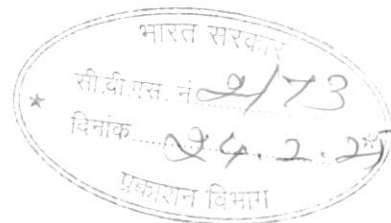 भारत सरकार
सी.बी.एस. नं 2/73
दिनांक 24.2.
प्रकाशन विभाग